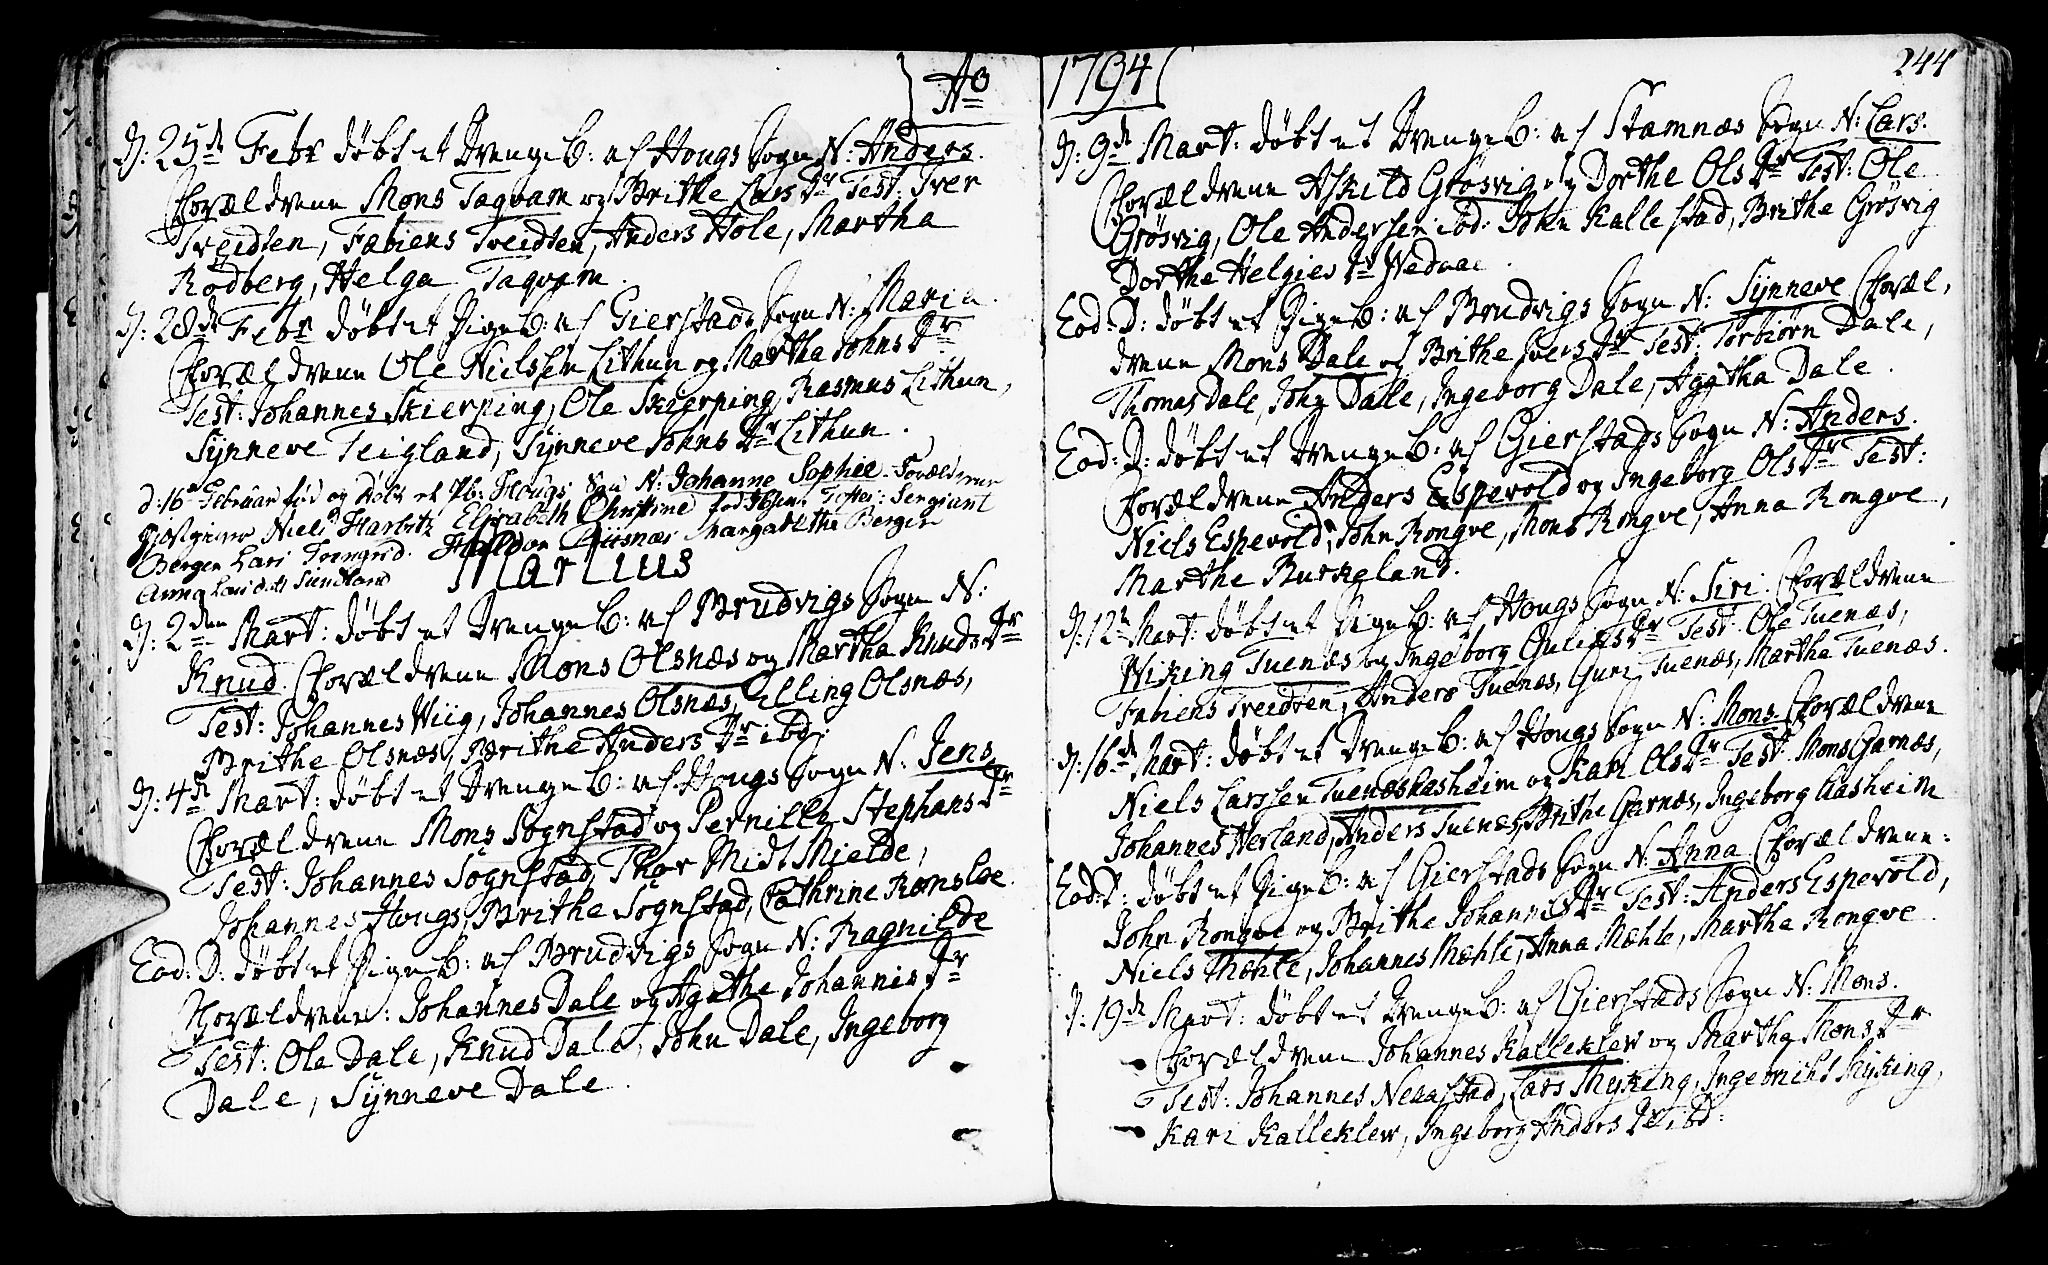 A⁰
D: 25de Febr døbt et DrengeB: af Hougs Sogn N: Anders.
Forældrene Mons Taqvam og Brithe Lars Dr Test: Iver
Treidten, Fæbiens Treidten, Anders Hole, Martha
Rødberg, Helga Taqvam.
D: 28de Febr døbt et PigeB: af Gierstads Sogn N: Maria.
Forældrene Ole Nielssen Lithun og Martha Johns Dr
Test: Johannes Skierping, Ole Skierping, Rasmus Lithun,
Synneve Teigland, Synneve Johns Dr Lithun.
d: 16 Februar fød og Døbt et Pb: Hougs Sogn N: Johanne Sophie Forældrene
Niels Harbitz Elisabeth Christine fød Test: Sergiant
Bergen Lars Margarethe Bergen
Anna Sundland
Martius
D: 2den Mart: døbt et DrengeB: af Brudvigs Sogn N:
Knud. Forældrene Mons Olsnæs og Martha Knuds Dr
Test: Johannes Wiig, Johannes Olsnæs, Elling Olsnæs,
Brithe Olsnæs, Brithe Anders Dr ibd:
D: 4de Mart: døbt et DrengeB: af Hougs Sogn N: Jens
Forældrene Mons Sognstad og Pernille Stephans Dr
Test: Johannes Sognstad, Thor Midt Mielde,
Johannes Hougs, Brithe Sognstad, Cathrine Romsloe.
Eod: D: døbt et PigeB: af Brudvigs Sogn N: Ragnilde
Forældrene: Johannes Dale og Agathe Johannis Dr
Test: Ole Dale, Knud Dale, John Dale, Ingeborg
Dale, Synneve Dale.
1794
244
D: 9de Mart: døbt et DrengeB: af Stamnæs Sogn N: Lars.
Forældrene Askild Grøsvig og Dorthe Ols Dr Test: Ole
Grøsvig, Ole Anderssen ibd: John Kallestad, Brithe Grøsvig
Dorthe Helgies Dr
Eod: D: døbt et PigeB: af Brudvigs Sogn N: Synneve Foræl,
drene Mons Dale og Brithe Ivers Dr Test: Torbiørn Dale,
Thomas Dale, John Dale, Ingeborg Dale, Agatha Dale.
Eod: D: døbt et DrengeB: af Gierstads Sogn N: Anders.
Forældrene Anders Espevold og Ingeborg Ols Dr Test:
Niels Espevold, John Rongve, Mons Rongve, Anna Rongve,
Marthe Burkeland.
D: 12te Mart: døbt et PigeB: af Hougs Sogn N: Siri. Forældrene
Wiking Tuenæs og Ingeborg Guliks Dr Test: Ole Tuenæs,
Fabiens Treidten, Anders Tuenæs, Guri Tuenæs, Martha Tuenæs.
D: 16de Mart: døbt et DrengeB: af Hougs Sogn N: Mons. Forældrene
Niels Larssen Tuenæsaasheim og Kari Ols Dr Test: Mons Garnæs,
Johannes Herland, Anders Tuenæs, Brithe Garnæs, Ingeborg Aasheim
Eod: D: døbt et PigeB: af Gierstads Sogn N: Anna Forældrene:
John Rongve og Brithe Johannis Dr Test: Anders Espevold,
Niels Mæhle, Johannes Mæhle, Anna Mæhle, Martha Rongve.
D: 19de Mart: døbt et DrengeB: af Gierstads Sogn N: Mons.
Forældrene Johannes Kalleklew og Martha Mons Dr
Test: Johannes Neaastad, Lars Myking, Ingebricht Myking,
Kari Kalleklew, Ingeborg Anders Dr ibd: